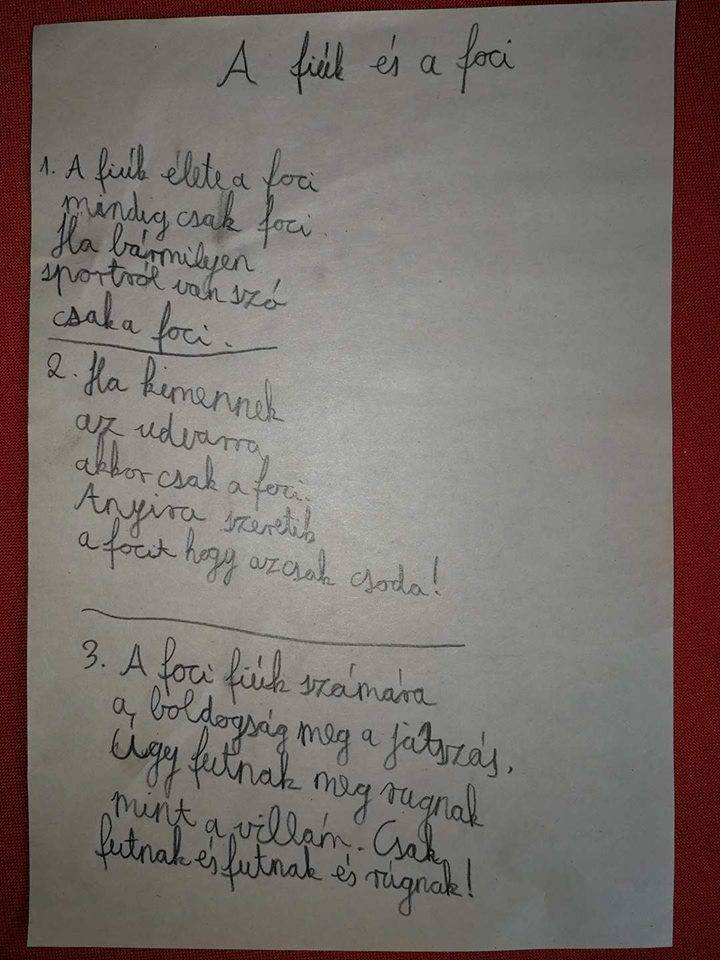 A fiúk és a foci
1. A fiúk élete a foci
mindig csak foci.
Ha bármilyen
sportról van szó
csak a foci.
2. Ha kimennek
az udvarra,
akkor csak a foci.
Anyira szeretik
a focit hogy azcsak csoda!
3. A foci fiúk számára
a boldogság meg a játszás.
Úgy futnak meg rugnak
mint a villám. Csak
futnak és futnak és rúgnak!